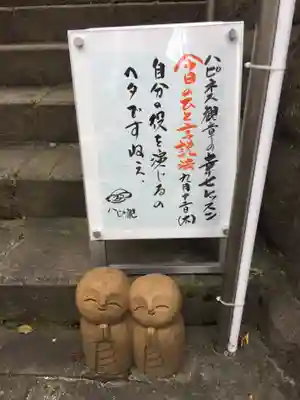 ハピネス観音の幸せレッスン
今日のひと言説法 九月十二日(木)
自分の役を演じるの
ヘタですねえ。
ハピ観